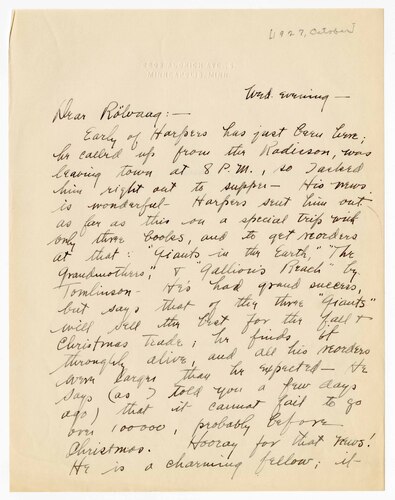 [1927, October]
MINNEAPOLIS, MINN.
Wed. evening —
Dear Rölvaag: —
Early of Harpers has just been here;
he called up from the Radisson, was
leaving town at 8 P.M., so I asked
him right out to supper — His news
is wonderful — Harpers sent him out
as far as this on a special trip with
only three books, and to get reorders
at that: "Giants in the Earth," "The
Grandmothers," & "Gallions Reach" by
Tomlinson — He's had grand success,
but says that of the three "Giants"
will sell the best for the fall &
Christmas trade; he finds it
throughly alive, and all his reorders
were larger than he expected — He
says (as I told you a few days
ago) that it cannot fail to go
over 100000, probably before
Christmas. Hooray for that news!
He is a charming fellow; it